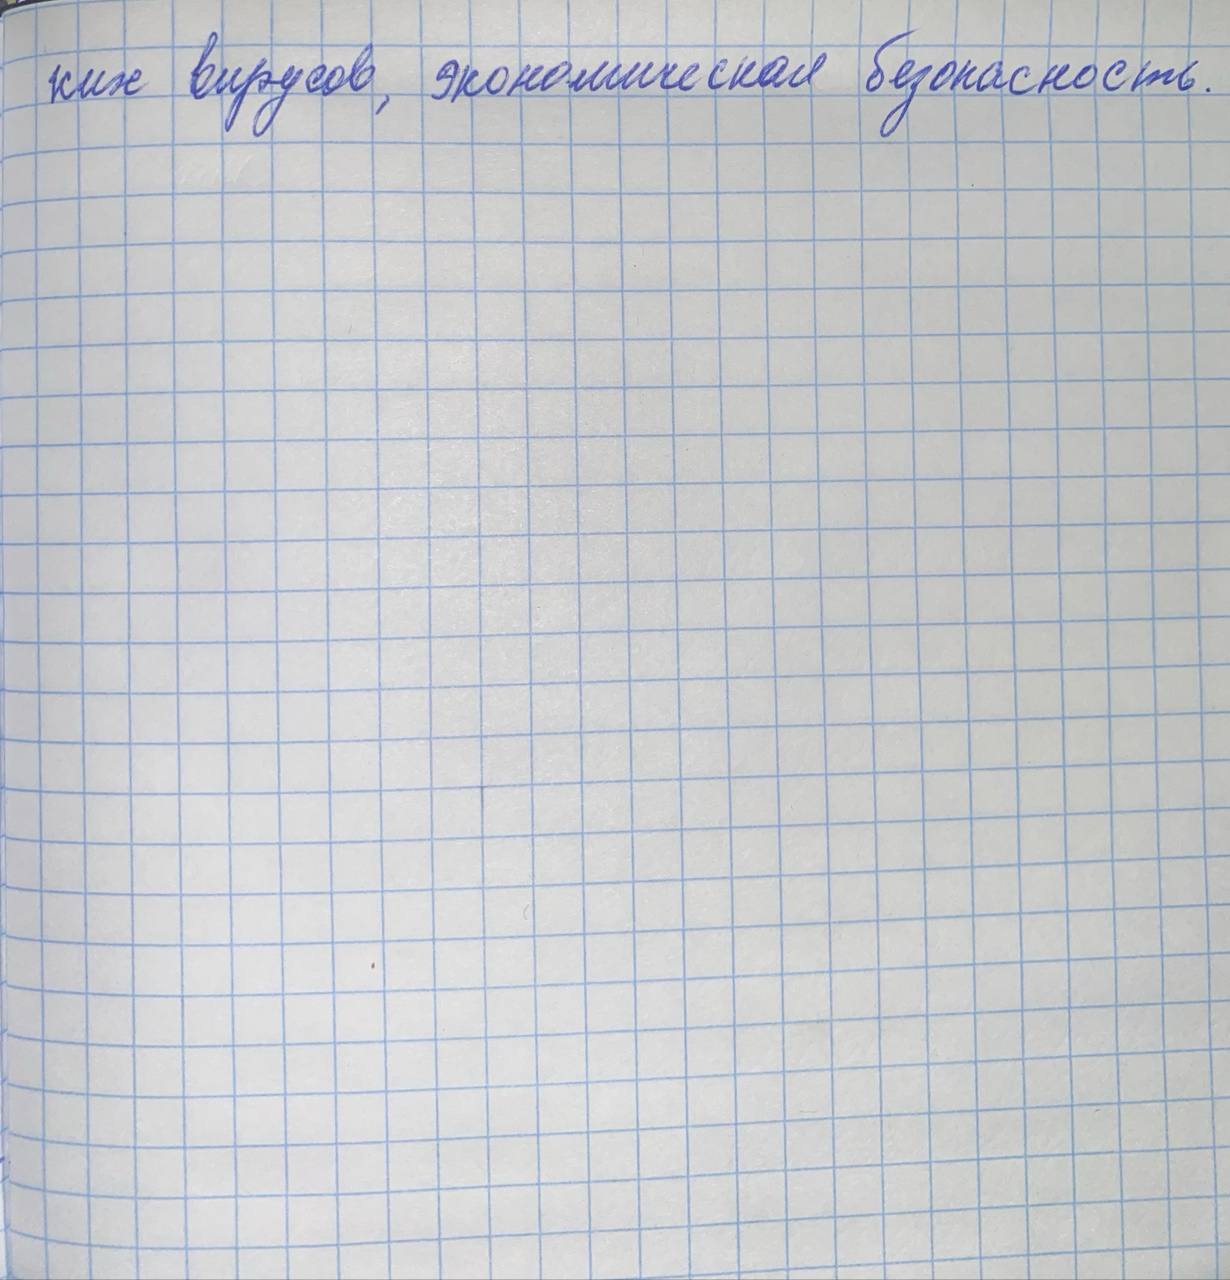 ких вирусов, экономическая безопасность.